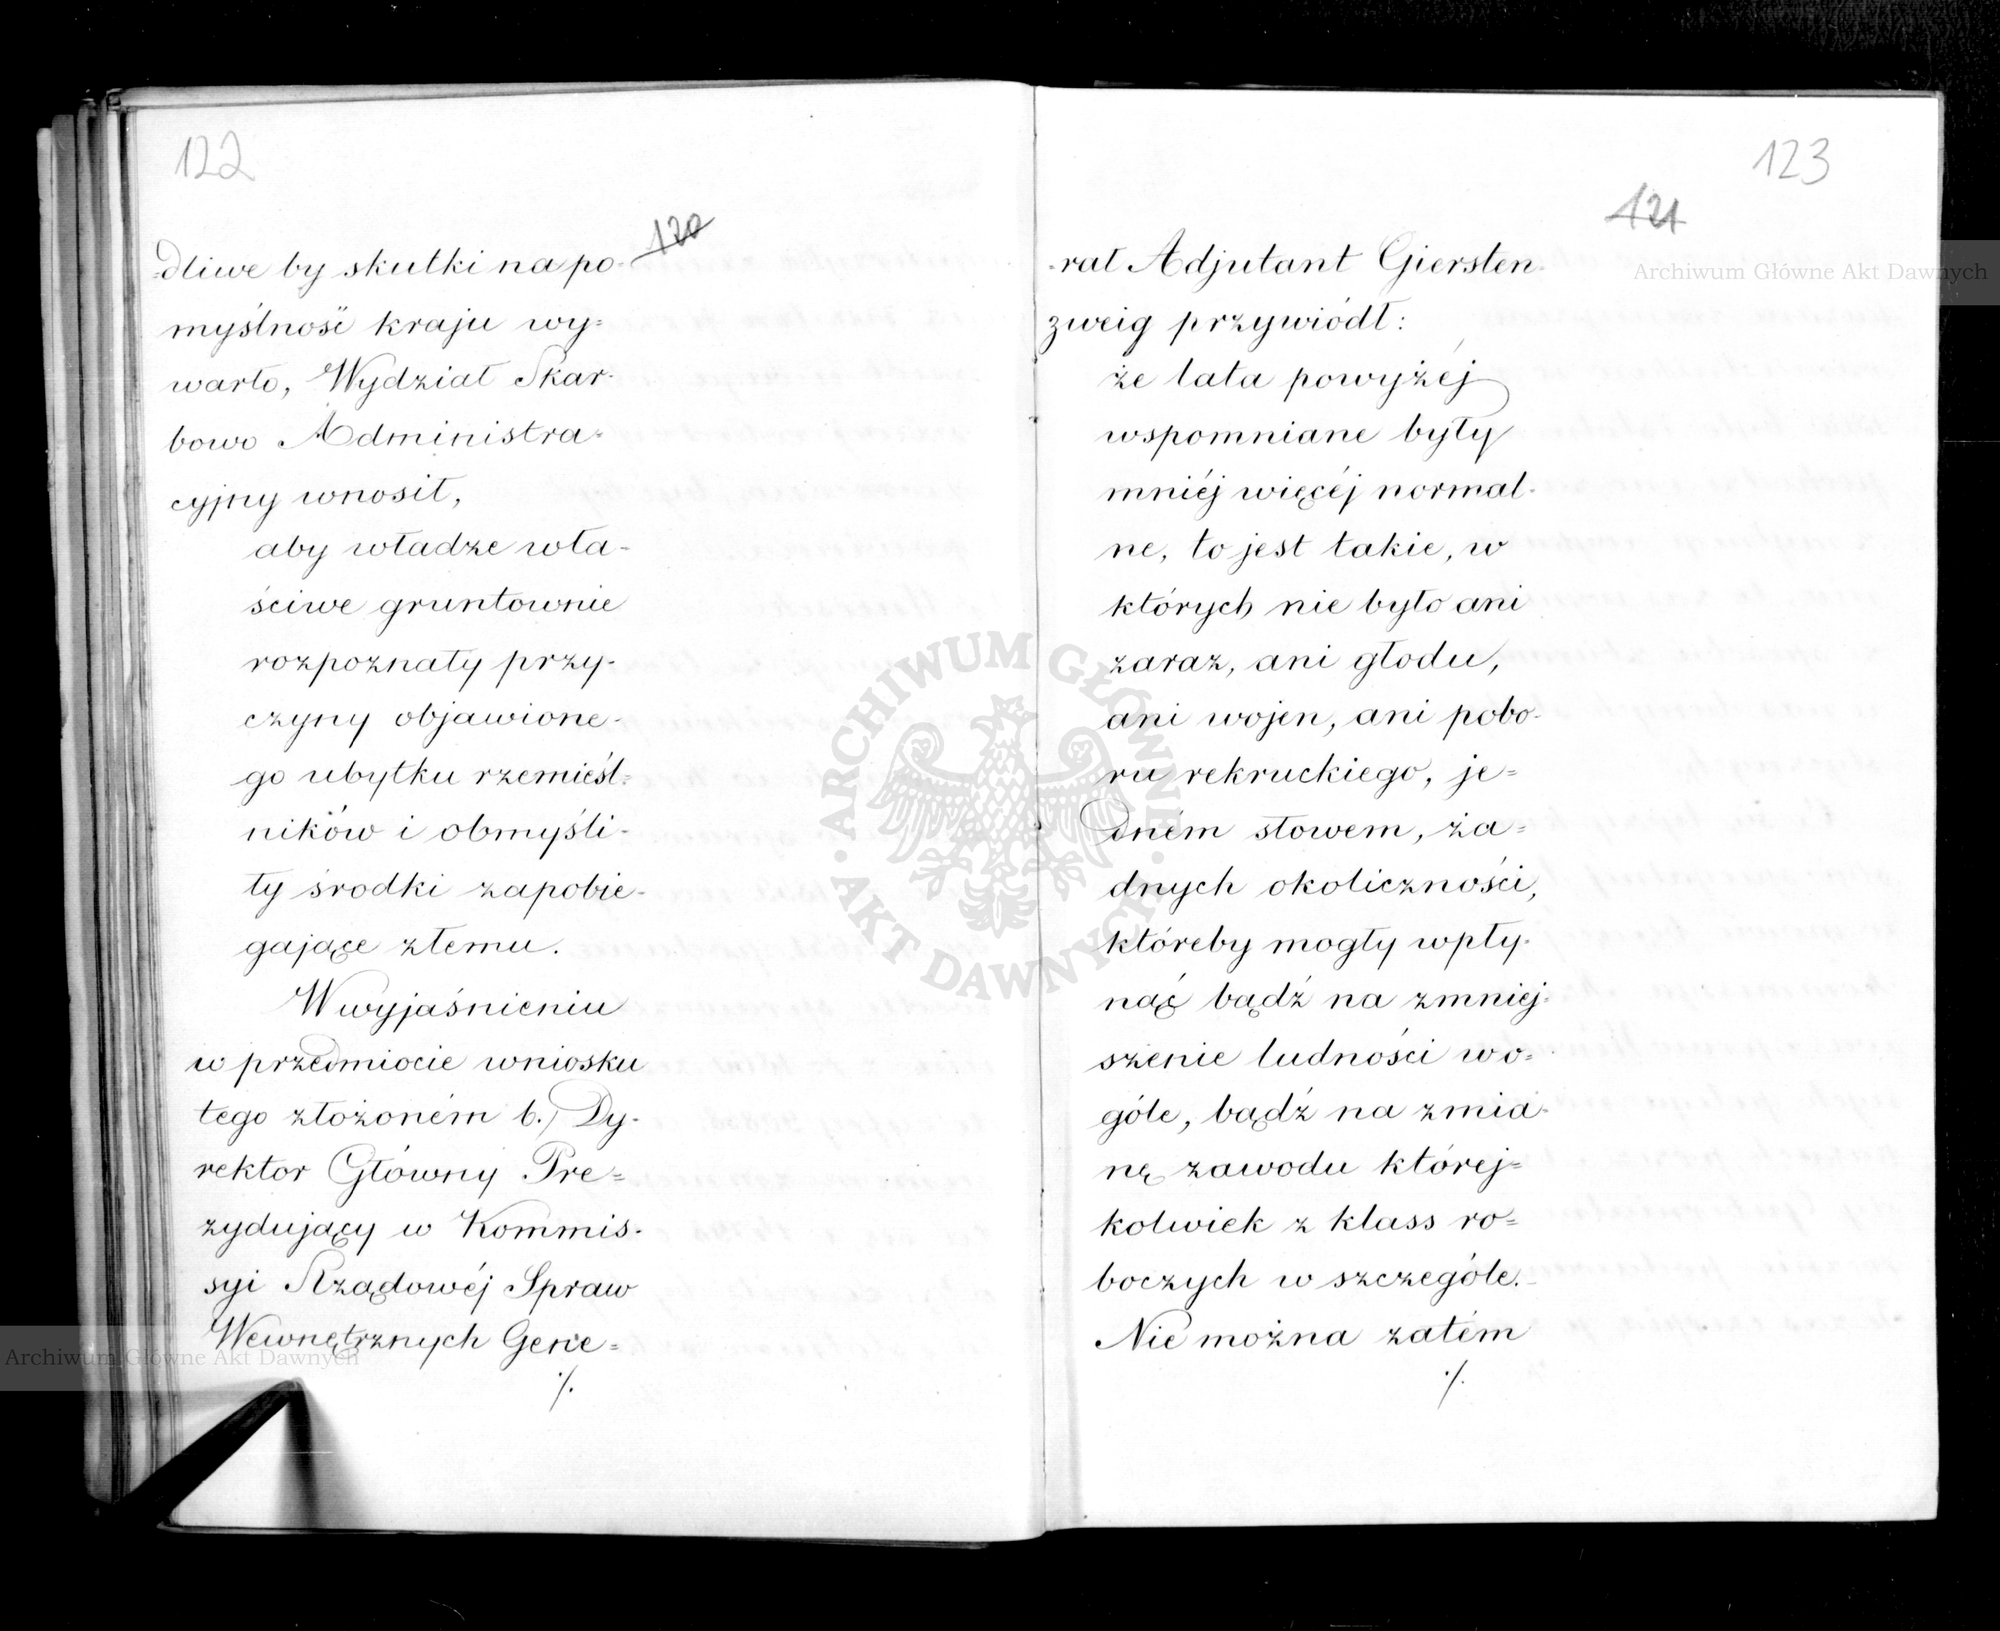 122
120
dliwe by skutki na po-
myślność kraju wy=
warło, Wydział Skar-
bowo Administra-
cyjny wnosił,
aby władze wła-
ściwe gruntownie
rozpoznały przy-
czyny objawione-
go ubytku rzemieśl=
ników i obmyśli-
ły środki zapobie-
gające złemu.
W wyjaśnieniu
w przedmiocie wniosku
tego złożoném b. Dy-
rektor Główny Pre=
zydujący w Kommis-
syi Rządowéj Spraw
Wewnętrznych Gene=
./.
Archiwum Główne Akt Dawnych
123
121
-rał Adjutant Giersten-
zweig przywiódł:
że lata powyżéj
wspomniane były
mniéj więcéj normal-
ne, to jest takie, w
których nie było ani
zaraz, ani głodu,
ani wojen, ani pobo-
ru rekruckiego, je=
dném słowem, ża=
dnych okoliczności,
któreby mogły wpły-
nąć bądź na zmniej-
szenie ludności wo=
góle, bądź na zmia-
nę zawodu której=
kolwiek z klass ro=
boczych w szczególe.
Nie można zatém
./.
Archiwum Główne Akt Dawnych
ARCHIWUM GŁÓWNE AKT DAWNYCH